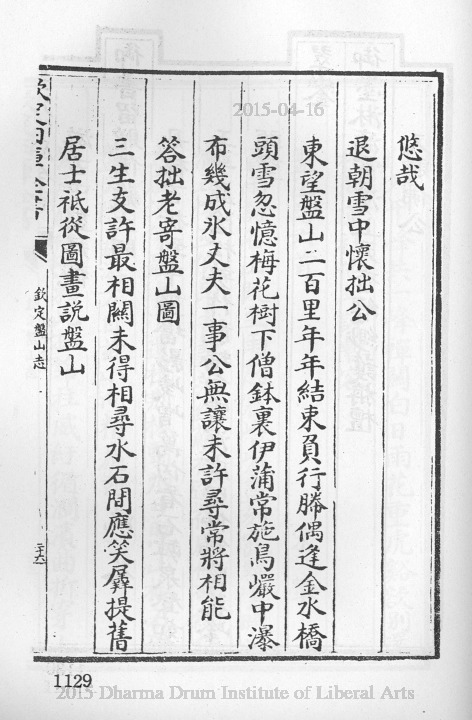 2015-04-16
悠哉
退朝雪中懷拙公
東望盤山二百里年年結束負行縢偶逢金水橋
頭雪忽憶梅花樹下僧鉢裏伊蒲常施鳥巖中瀑
布幾成氷丈夫一事公無讓未許尋常將相能
答拙老寄盤山圖
三生支許最相關未得相尋水石間應笑屛提舊
居士祗從圖畫説盤山
欽定盤山志
1129
2015 Dharma Drum Institute of Liberal Arts